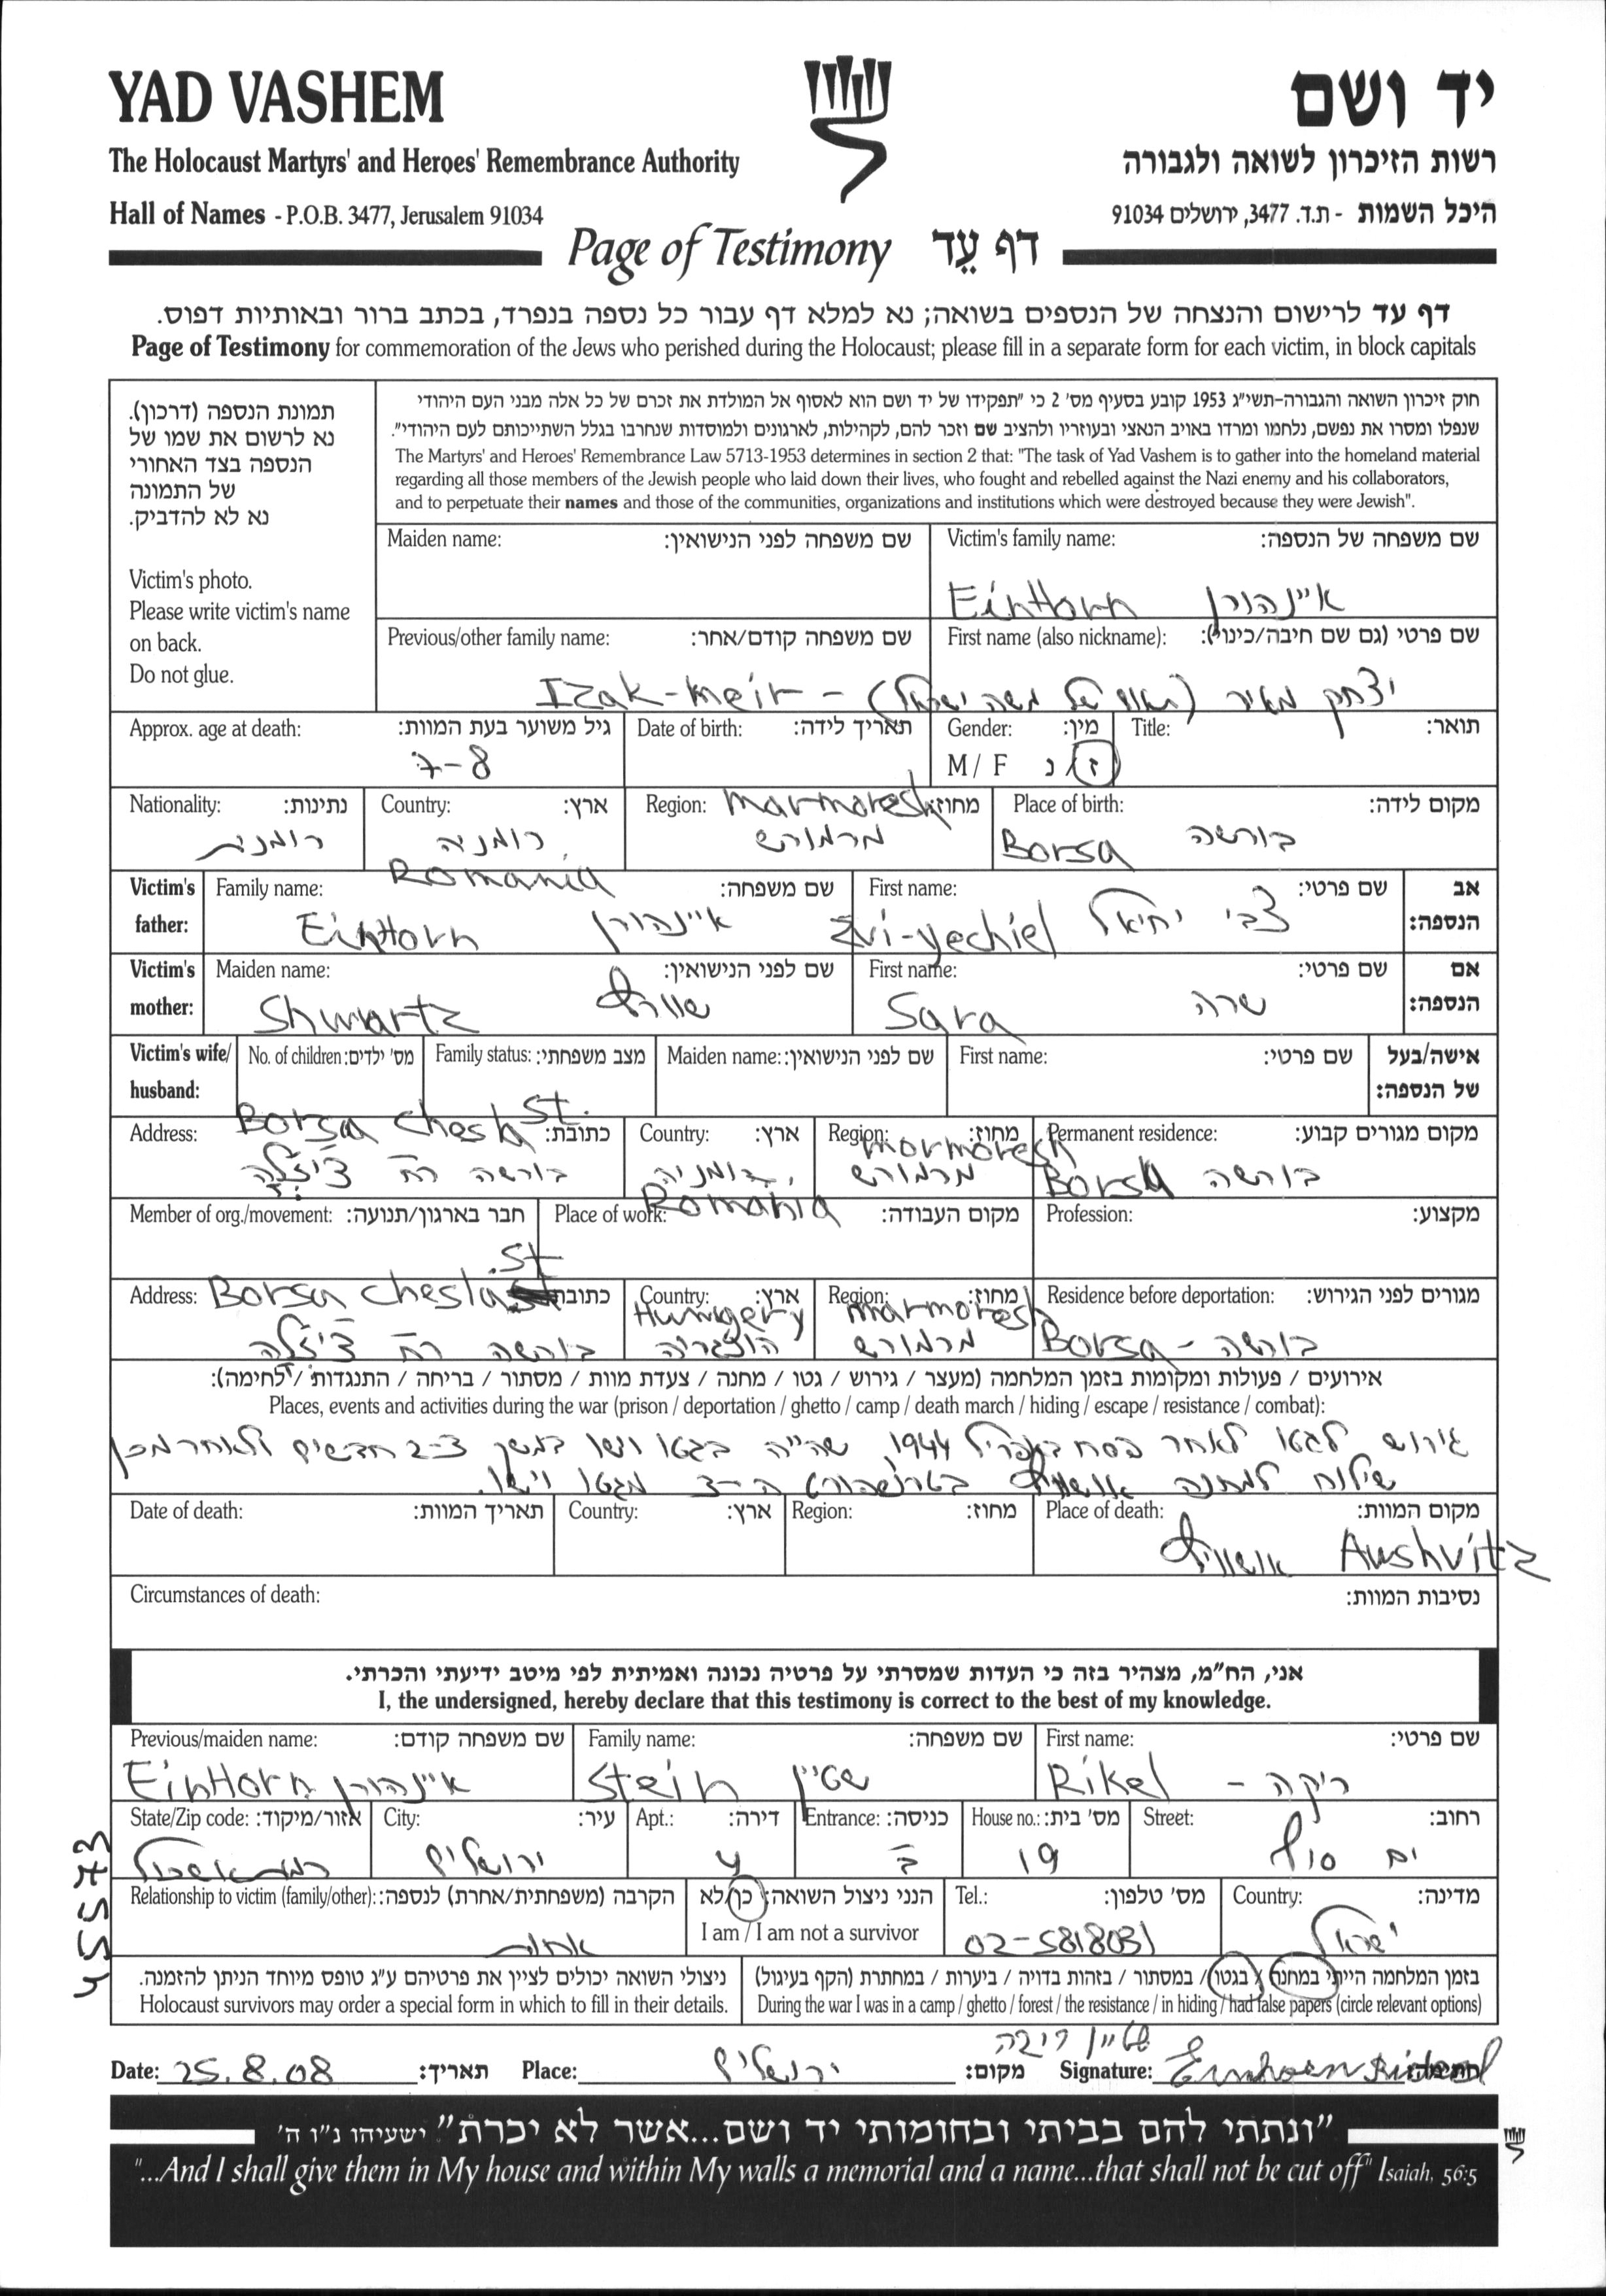 YAD VASHEM
יד ושם
The Holocaust Martyrs' and Heroes' Remembrance Authority
רשות הזיכרון לשואה ולגבורה
Hall of Names - P.O.B. 3477, Jerusalem 91034
היכל השמות - ת.ד. 3477, ירושלים 91034
Page of Testimony דף עֵד
דף עד לרישום והנצחה של הנספים בשואה; נא למלא דף עבור כל נספה בנפרד, בכתב ברור ובאותיות דפוס.
Page of Testimony for commemoration of the Jews who perished during the Holocaust; please fill in a separate form for each victim, in block capitals
תמונת הנספה (דרכון).
נא לרשום את שמו של
הנספה בצד האחורי
של התמונה
נא לא להדביק.
Victim's photo.
Please write victim's name
on back.
Do not glue.
חוק זיכרון השואה והגבורה-תשי"ג 1953 קובע בסעיף מס' 2 כי "תפקידו של יד ושם הוא לאסוף אל המולדת את זכרם של כל אלה מבני העם היהודי
שנפלו ומסרו את נפשם, נלחמו ומרדו באויב הנאצי ובעוזריו ולהציב שם וזכר להם, לקהילות, לארגונים ולמוסדות שנחרבו בגלל השתייכותם לעם היהודי".
The Martyrs' and Heroes' Remembrance Law 5713-1953 determines in section 2 that: "The task of Yad Vashem is to gather into the homeland material
regarding all those members of the Jewish people who laid down their lives, who fought and rebelled against the Nazi enemy and his collaborators,
and to perpetuate their names and those of the communities, organizations and institutions which were destroyed because they were Jewish".
Maiden name: שם משפחה לפני הנישואין:
Victim's family name: שם משפחה של הנספה:
EinHorn איינהורן
Previous/other family name: שם משפחה קודם/אחר:
First name (also nickname): שם פרטי (גם שם חיבה/כינוי):
Izak-meir - יצחק מאיר (תאום של משה ישראל)
Approx. age at death: גיל משוער בעת המוות:
7-8
Date of birth: תאריך לידה:
Gender: מין:
M / F ז / נ
Title: תואר:
Nationality: נתינות:
רומנית
Country: ארץ:
רומניה
Romania
Region: מחוז:
marmoresh
מרמורש
Place of birth: מקום לידה:
Borsa בורשה
Victim's father:
Family name: שם משפחה:
EinHorn איינהורן
First name: שם פרטי:
Zvi-yechiel צבי יחיאל
אב הנספה:
Victim's mother:
Maiden name: שם לפני הנישואין:
Shwartz שוורץ
First name: שם פרטי:
Sara שרה
אם הנספה:
Victim's wife/ husband:
No. of children: מס' ילדים:
Family status: מצב משפחתי:
Maiden name: שם לפני הנישואין:
First name: שם פרטי:
אישה/בעל של הנספה:
Address: כתובת:
Borsa chesla St.
בורשה רח' צ'יזלה
Country: ארץ:
רומניה
Romania
Region: מחוז:
mormoresh
מרמורש
Permanent residence: מקום מגורים קבוע:
Borsa בורשה
Member of org./movement: חבר בארגון/תנועה:
Place of work: מקום העבודה:
Profession: מקצוע:
Address: כתובת:
Borsa chesla St.
בורשה רח' צ'יזלה
Country: ארץ:
Hungery
הונגריה
Region: מחוז:
marmoresh
מרמורש
Residence before deportation: מגורים לפני הגירוש:
Borsa - בורשה
אירועים / פעולות ומקומות בזמן המלחמה (מעצר / גירוש / גטו / מחנה / צעדת מוות / מסתור / בריחה / התנגדות / לחימה):
Places, events and activities during the war (prison / deportation / ghetto / camp / death march / hiding / escape / resistance / combat):
גירוש לגטו לאחר פסח באפריל 1944, שהייה בגטו וישו במשך 2-3 חדשים ולאחר מכן
שילוח למחנה אושוויץ בטרנספורט ה-3 מגטו וישו.
Date of death: תאריך המוות:
Country: ארץ:
Region: מחוז:
Place of death: מקום המוות:
אושוויץ Aushvitz
Circumstances of death: נסיבות המוות:
אני, הח"מ, מצהיר בזה כי העדות שמסרתי על פרטיה נכונה ואמיתית לפי מיטב ידיעתי והכרתי.
I, the undersigned, hereby declare that this testimony is correct to the best of my knowledge.
Previous/maiden name: שם משפחה קודם:
EinHorn איינהורן
Family name: שם משפחה:
Stein שטיין
First name: שם פרטי:
Rikel - ריקה
State/Zip code: אזור/מיקוד:
רמת אשכול
City: עיר:
ירושלים
Apt.: דירה:
4
Entrance: כניסה:
ב
House no.: מס' בית:
19
Street: רחוב:
ים סוף
Relationship to victim (family/other): הקרבה (משפחתית/אחרת) לנספה:
אחות
הנני ניצול השואה: כן/לא
I am / I am not a survivor
Tel.: מס' טלפון:
02-5818031
Country: מדינה:
ישראל
ניצולי השואה יכולים לציין את פרטיהם ע"ג טופס מיוחד הניתן להזמנה.
Holocaust survivors may order a special form in which to fill in their details.
בזמן המלחמה הייתי במחנה / בגטו / במסתור / בזהות בדויה / ביערות / במחתרת (הקף בעיגול)
During the war I was in a camp / ghetto / forest / the resistance / in hiding / had false papers (circle relevant options)
Date: 25.8.08 תאריך:
Place: ירושלים מקום:
Signature: חתימה:
"ונתתי להם בביתי ובחומותי יד ושם...אשר לא יכרת" ישעיהו נ"ו ה'
"...And I shall give them in My house and within My walls a memorial and a name...that shall not be cut off" Isaiah, 56:5